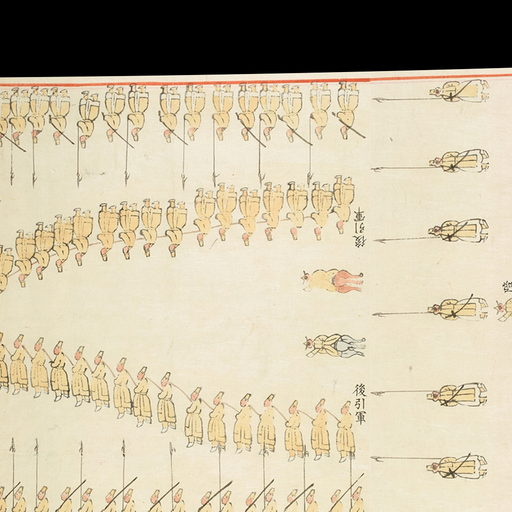 後引軍
後引軍